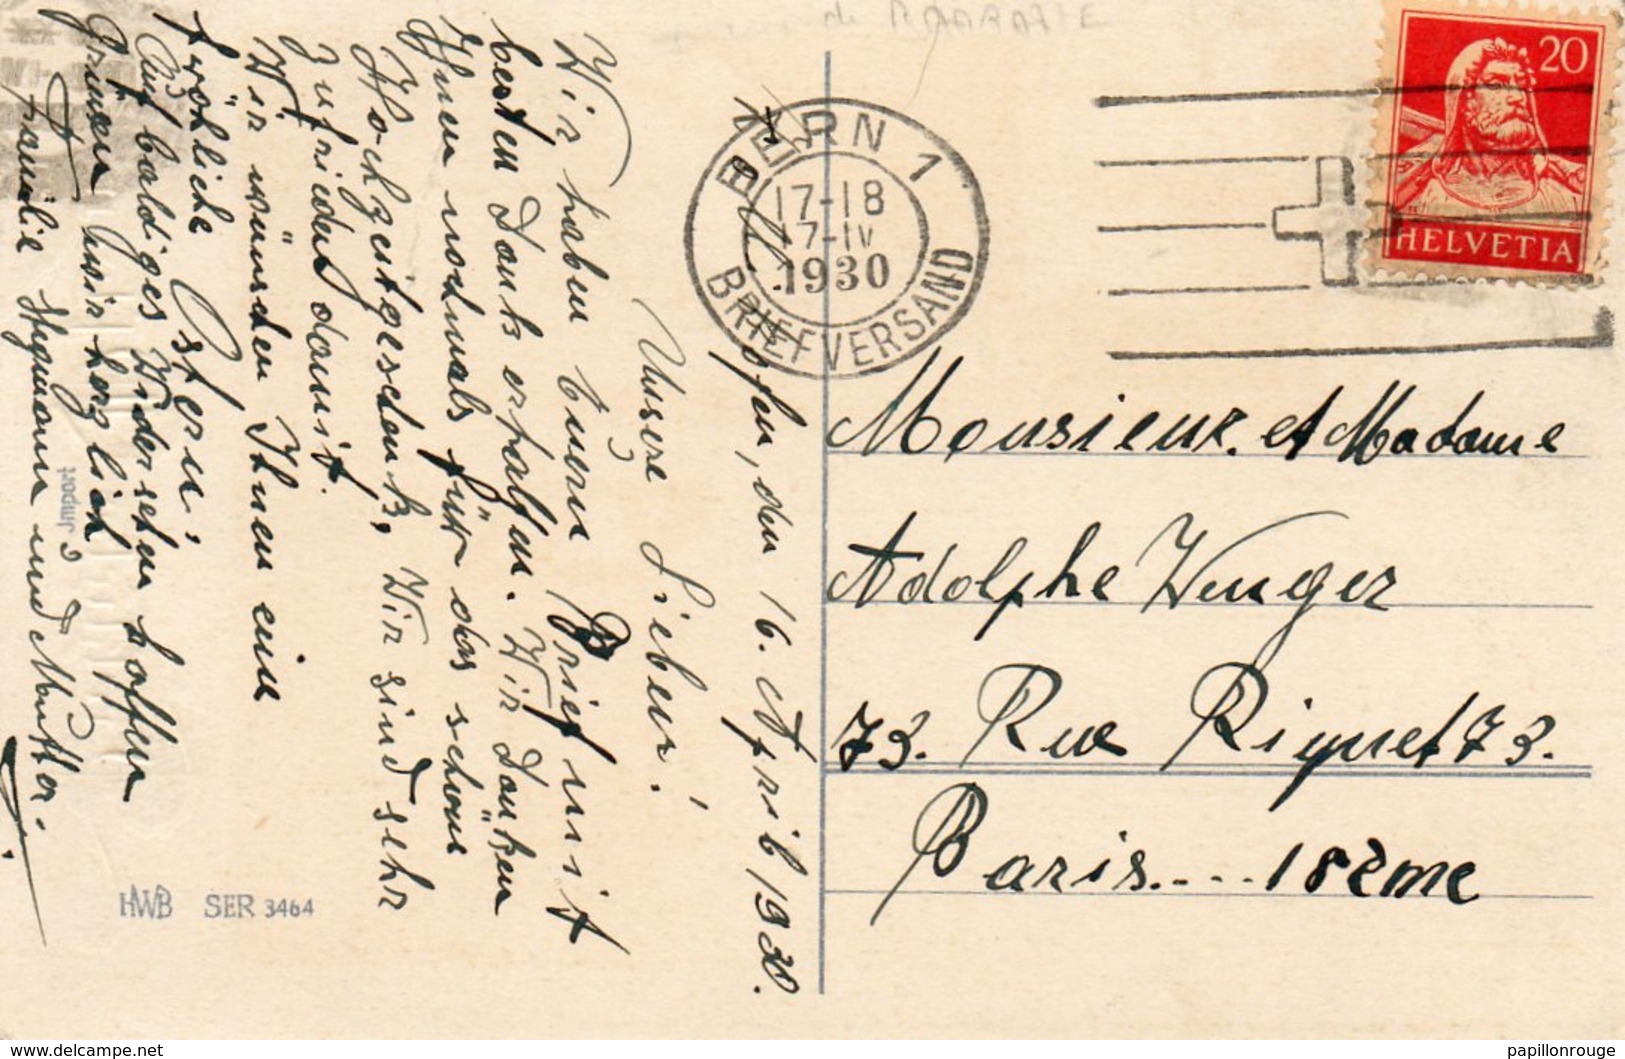 de
20
HELVETIA
BERN 1
17-18
17-IV
1930
BRIEFVERSAND
den 16. April 1930.
Unsere Lieben!
Wir haben Euern Brief mit
besten Dank erhalten. Wir Danken
Ihnen nochmals für das schöne
Hochzeitgeschenk, Wir sind sehr
zufrieden damit.
Wir wünschen Ihnen ein
fröhliche Ostern.
Auf baldiges Widersehen hoffen
Grüssen wir herzlich
Familie Hegmann und Mutter.
Monsieur et Madame
Adolphe Wenger
73. Rue Riquet 73.
Paris.... 18ème
Import
HWB SER 3464
www.delcampe.net
papillonrouge